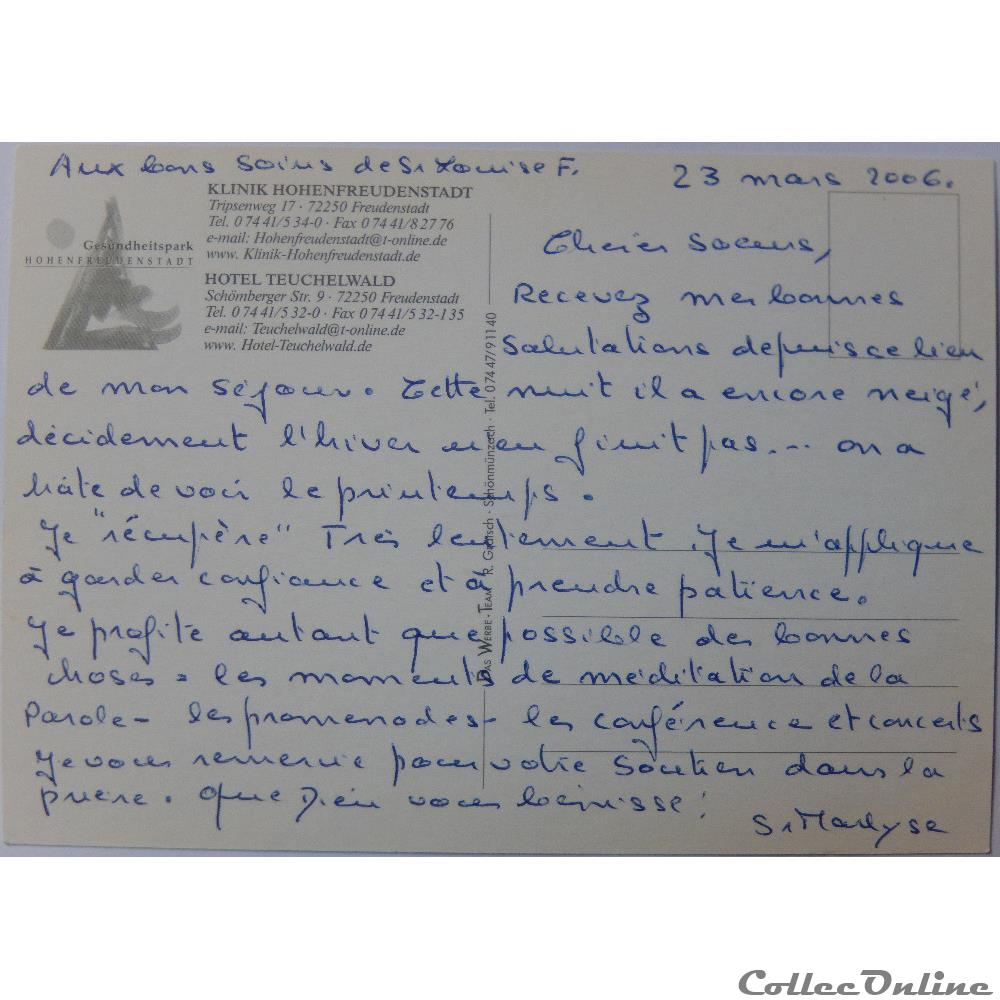 Aux bons soins de Sr Louise F.
23 mars 2006.
KLINIK HOHENFREUDENSTADT
Tripsenweg 17 · 72250 Freudenstadt
Tel. 0 74 41/5 34-0 · Fax 0 74 41/8 27 76
e-mail: Hohenfreudenstadt@t-online.de
www. Klinik-Hohenfreudenstadt.de
Gesundheitspark
HOHENFREUDENSTADT
HOTEL TEUCHELWALD
Schömberger Str. 9 · 72250 Freudenstadt
Tel. 0 74 41/5 32-0 · Fax 0 74 41/5 32-135
e-mail: Teuchelwald@t-online.de
www. Hotel-Teuchelwald.de
DAS WERBE-TEAM · R. Gräßsch · Schönmünzach · Tel. 0 74 47/9 11 40
Chères soeurs,
Recevez mes bonnes
salutations depuis ce lieu
de mon séjour. Cette nuit il a encore neigé,
décidement l'hiver n'en finit pas... on a
hâte de voir le printemps.
Je "récupère" Très lentement. Je m'applique
à garder confiance et à prendre patience.
Je profite autant que possible des bonnes
choses = les moments de méditation de la
Parole - les promenades - les conférence et concerts
Je vous remercie pour votre soutien dans la
prière. Que Dieu vous bénisse!
Sr Marlyse
CollecOnline